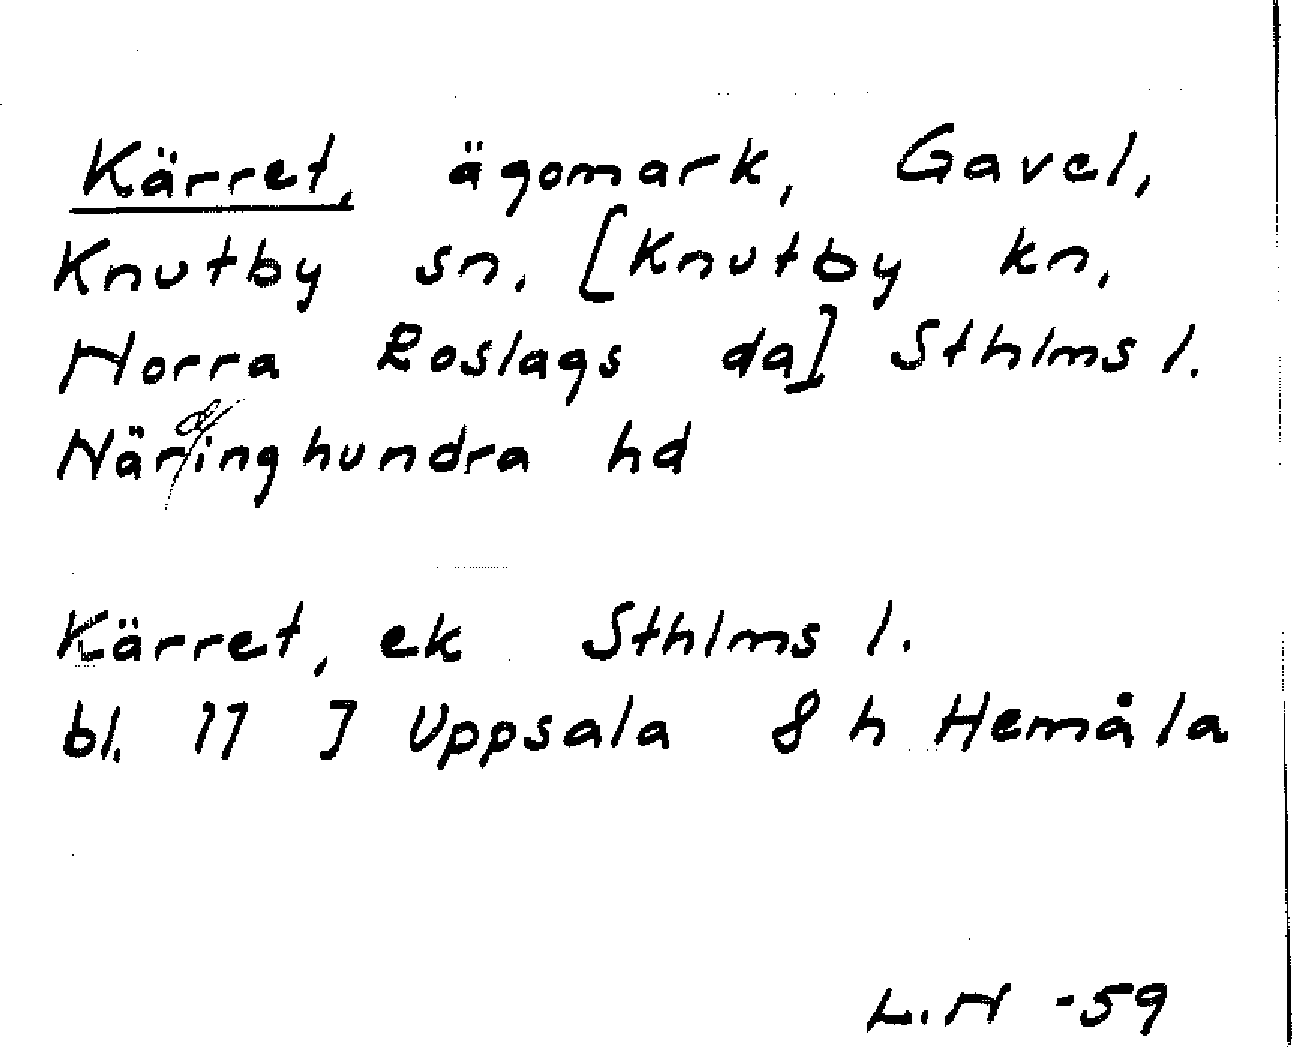 Kärret, ägomark, Gavel,
Knutby sn. [Knutby kn,
Norra Roslags da] Sthlms l.
Näringhundra hd
Kärret, ek Sthlms l.
bl. 11 J Uppsala 8 h Hemåla
L.N -59